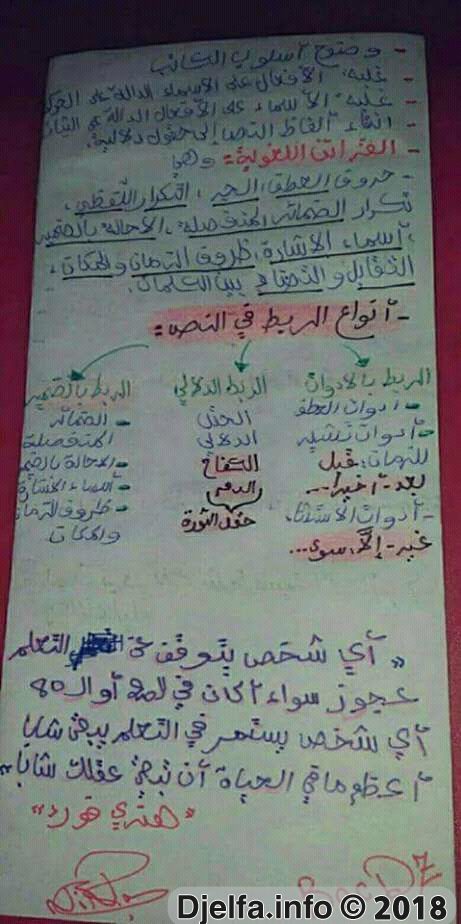 - وضوح أسلوب الكاتب
- غلبة الأفعال على الأسماء الدالة على
- غلبة الأسماء على الأفعال الدالة على
- انتقاء ألفاظ النص إلى حقول دلالية.
- القرائن اللغوية: وهي
- حروف العطف، الجر، التكرار اللفظي،
تكرار الضمائر المنفصلة، الإحالة بالضمير
، أسماء الإشارة، ظروف الزمان والمكان،
التقابل والتضاد بين الكلمات.
- أنواع الربط في النص:
الربط بالأدوات الربط الدلالي الربط بالضمير
- أدوات العطف الحقل - الضمائر
- أدوات تشير الدلالي المنفصلة
للزمان: قبل الكفاح - الإحالة بالضمير
بعد - أخيرا... الدم - أسماء الإشارة
- أدوات الاستثناء حقل الثورة - ظروف الزمان
غير - إلّا، سوى... والمكان
" أي شخص يتوقف عن التعلم
عجوز سواء أكان في الـ20 أو الـ80
أي شخص يستمر في التعلم يبقى شابا
أعظم ما في الحياة أن تبقي عقلك شابا "
"هنري فورد"
Djelfa.info © 2018